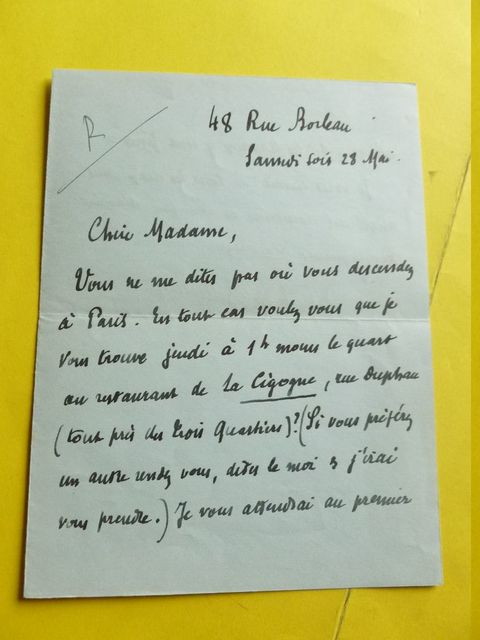 R
48 Rue Boileau
Samedi soir 28 Mai.
Chère Madame,
Vous ne me dites pas où vous descendez
à Paris. En tout cas voulez vous que je
vous trouve jeudi à 1h moins le quart
au restaurant de La Cigogne, rue Duphau
(tout près des Trois Quartiers)? (Si vous préférez
un autre rendez vous, dites le moi & j'irai
vous prendre.) Je vous attendrai au premier